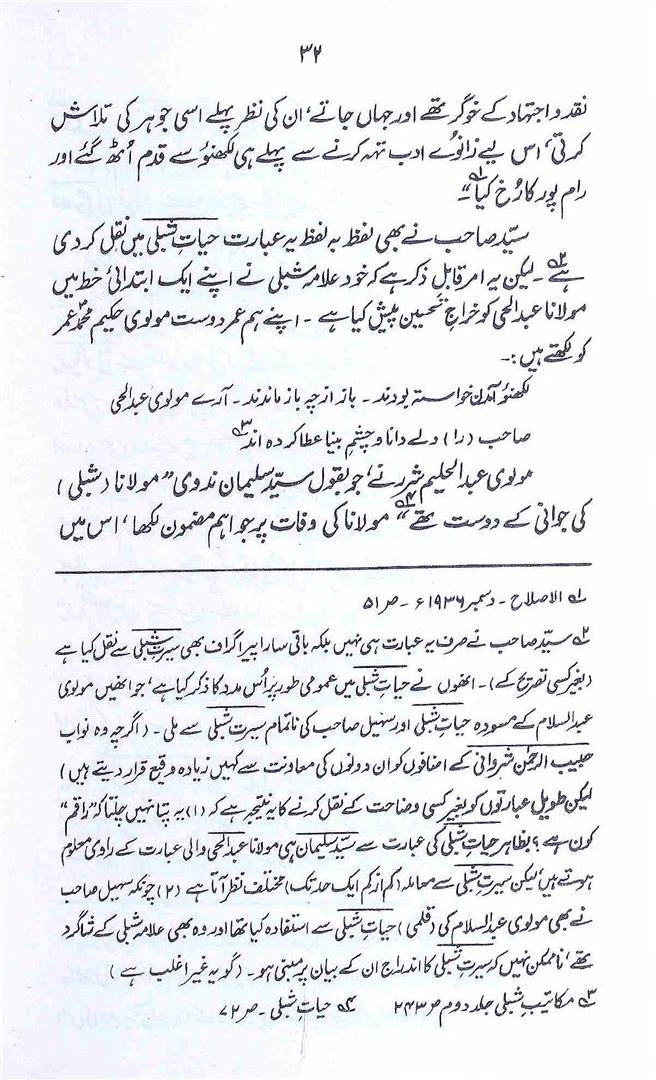 ۳۲
نقد و اجتہاد کے خوگر تھے اور جہاں جاتے، ان کی نظر پہلے اسی جوہر کی تلاش
کرتی، اس لیے زانوے ادب تہہ کرنے سے پہلے ہی لکھنؤ سے قدم اُٹھ گئے اور
رام پور کا رُخ کیا"۔۱؎
سیّد صاحب نے بھی لفظ بہ لفظ یہ عبارت حیاتِ شبلی میں نقل کر دی
ہے۲؎۔ لیکن یہ امر قابلِ ذکر ہے کہ خود علامہ شبلی نے اپنے ایک ابتدائی خط میں
مولانا عبدالحی کو خراجِ تحسین پیش کیا ہے ۔ اپنے ہم عمر دوست مولوی حکیم محمد عمر
کو لکھتے ہیں :۔
لکھنؤ آمدن خواستہ بودند ۔ باز از چہ باز ماندند ۔ آرے مولوی عبدالحی
صاحب (را) دلے دانا و چشمِ بینا عطا کردہ اند۳؎
مولوی عبدالحلیم شرر نے، جو بقول سیّد سلیمان ندوی "مولانا (شبلی)
کی جوانی کے دوست تھے"۴؎ مولانا کی وفات پر جو اہم مضمون لکھا، اس میں
۱؎ الاصلاح ۔ دسمبر ۱۹۳۶ء ۔ ص ۵۱
۲؎ سیّد صاحب نے صرف یہ عبارت ہی نہیں بلکہ باقی سارا پیراگراف بھی سیرت شبلی سے نقل کیا ہے
(بغیر کسی تصریح کے) ۔ انھوں نے حیاتِ شبلی میں عمومی طور پر اُس مدد کا ذکر کیا ہے، جو انھیں مولوی
عبدالسلام کے مسودہ حیاتِ شبلی اور سہیل صاحب کی ناتمام سیرت شبلی سے ملی ۔ (اگرچہ وہ نواب
حبیب الرحمٰن شروانی کے اضافوں کو ان دونوں کی معاونت سے کہیں زیادہ وقیع قرار دیتے ہیں)
لیکن طویل عبارتوں کو بغیر کسی وضاحت کے نقل کرنے کا یہ نتیجہ ہے کہ (۱) یہ پتا نہیں چلتا کہ "راقم"
کون ہے؟ بظاہر حیاتِ شبلی کی عبارت سے سیّد سلیمان ہی مولانا عبدالحی والی عبارت کے راوی معلوم
ہوتے ہیں، لیکن سیرت شبلی سے معاملہ (کم از کم ایک حد تک) مختلف نظر آتا ہے (۲) چونکہ سہیل صاحب
نے بھی مولوی عبدالسلام کی (قلمی) حیاتِ شبلی سے استفادہ کیا تھا اور وہ بھی علامہ شبلی کے شاگرد
تھے، ناممکن نہیں کہ سیرت شبلی کا اندراج ان کے بیان پر مبنی ہو ۔ (گو یہ غیر اغلب ہے)
۳؎ مکاتیبِ شبلی جلد دوم ص ۲۴۳ ۴؎ حیاتِ شبلی ۔ ص ۷۲